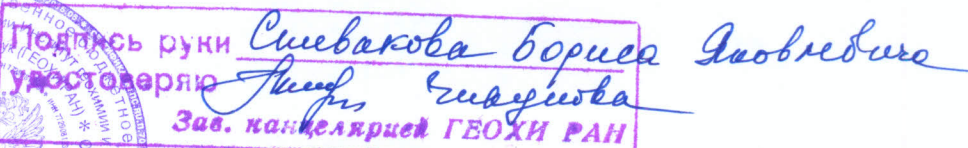 Подпись руки Спивакова Бориса Яковлевича
удостоверяю
Зав. канцелярией ГЕОХИ РАН